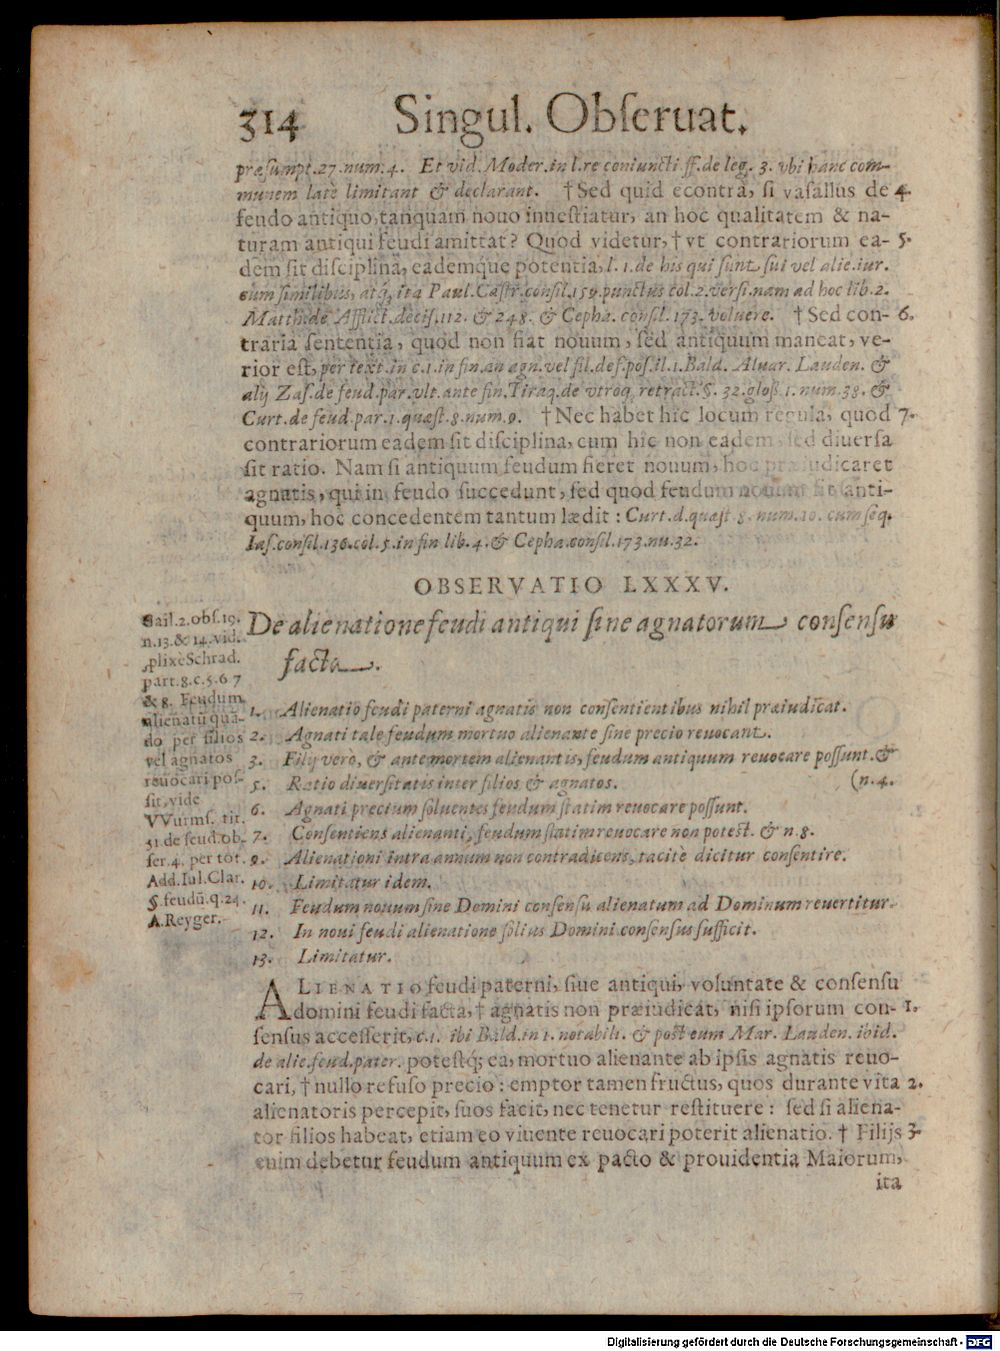 314 Singul. Obſeruat.
præſumpt.27.num.4. Et vid. Moder. in l. re coniuncti. ff. de leg. 3. vbi hanc com-
munem latè limitant & declarant. † Sed quid econtrà, ſi vaſallus de 4.
feudo antiquo, tanquam nouo inueſtiatur, an hoc qualitatem & na-
turam antiqui feudi amittat? Quod videtur, † vt contrariorum ea- 5.
dem ſit diſciplina, eademque potentia, l. 1. de his qui ſunt ſui vel alie. iur.
cum ſimilibus, atq́, ita Paul. Caſtr. conſil. 159. punctus col. 2. verſi. nam ad hoc lib. 2.
Matth. de Afflict. deciſ. 112. & 248. & Cepha. conſil. 173. voluere. † Sed con- 6.
traria ſententia, quod non fiat nouum, ſed antiquum maneat, ve-
rior eſt, per text. in c. 1. in fin. an agn. vel fil. def. poſ. il. 1. Bald. Aluar. Lauden. &
alij Zaſ. de feud. par. vlt. ante fin. Tiraq. de vtroq, retract. §. 32. gloſ. 1. num. 38. &
Curt. de feud. par. 1. quæſt. 8. num. 9. † Nec habet hîc locum regula, quod 7.
contrariorum eadem ſit diſciplina, cum hîc non eadem, ſed diuerſa
ſit ratio. Nam ſi antiquum feudum fieret nouum, hoc præiudicaret
agnatis, qui in feudo ſuccedunt, ſed quod feudum nouum ſit anti-
quum, hoc concedentem tantum lædit: Curt. d. quæſt. 8. num. 10. cum ſeq.
Iaſ. conſil. 136. col. 5. in fin lib. 4. & Cepha. conſil. 173. nu. 32.
OBSERVATIO LXXXV.
De alienatione feudi antiqui ſine agnatorum conſenſu
facta.
Gail. 2. obſ. 19.
n. 13. & 14. vid.
plixè Schrad.
part. 8. c. 5. 6 7
& 8. Feudum
alienatū quã-
do per filios
vel agnatos
reuocari poſ-
ſit, vide
VVurmſ. tit.
31. de feud. ob-
ſer. 4. per tot.
Add. Iul. Clar.
§. feudū. q. 24.
A. Reyger.
1. Alienatio feudi paterni agnatis non conſentientibus nihil præiudicat.
2. Agnati tale feudum mortuo alienante ſine precio reuocant.
3. Filij verò, & ante mortem alienantis, feudum antiquum reuocare poſſunt. &
5. Ratio diuerſitatis inter filios & agnatos. (n. 4.
6. Agnati precium ſoluentes feudum ſtatim reuocare poſſunt.
7. Conſentiens alienanti, feudum ſtatim reuocare non poteſt. & n. 8.
9. Alienationi intra annum non contradicens, tacitè dicitur conſentire.
10. Limitatur idem.
11. Feudum nouum ſine Domini conſenſu alienatum ad Dominum reuertitur.
12. In noui feudi alienatione ſolius Domini conſenſus ſufficit.
13. Limitatur.
ALIENATIO feudi paterni, ſiue antiqui, voluntate & conſenſu
domini feudi facta, † agnatis non præiudicat, niſi ipſorum con- 1.
ſenſus acceſſerit, c. 1. ibi Bald. in 1. notabili. & poſt eum Mar. Lauden. ibid.
de alie. feud. pater. poteſtq́; ea, mortuo alienante ab ipſis agnatis reuo-
cari, † nullo refuſo precio: emptor tamen fructus, quos durante vita 2.
alienatoris percepit, ſuos facit, nec tenetur reſtituere: ſed ſi aliena-
tor filios habeat, etiam eo viuente reuocari poterit alienatio. † Filijs 3.
enim debetur feudum antiquum ex pacto & prouidentia Maiorum,
ita
Digitalisierung gefördert durch die Deutsche Forschungsgemeinschaft - DFG